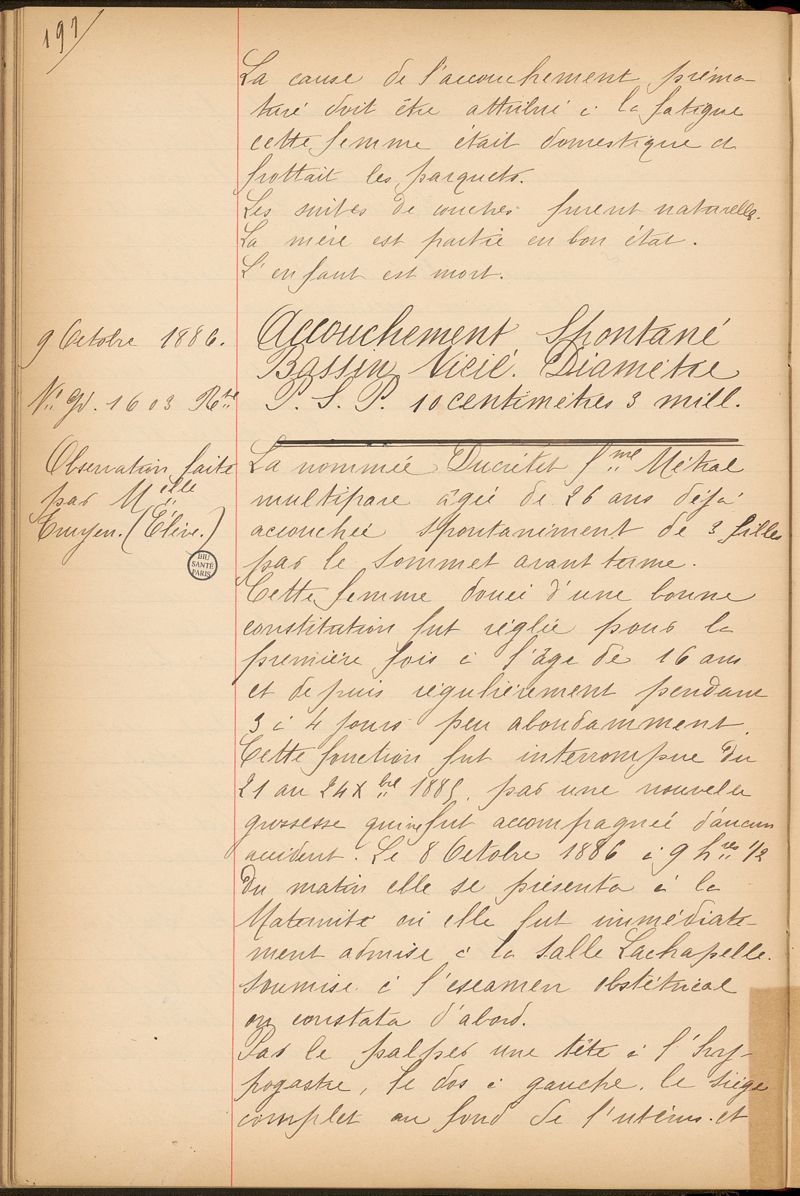 197
La cause de l'accouchement préma-
turé doit être attribué à la fatigue
cette femme était domestique et
frottait les parquets.
Les suites de couches furent naturelles.
La mère est partie en bon état.
L'enfant est mort.
9 Octobre 1886.
Accouchement Spontané
Bassin Vicié. Diamètre
P. S. P. 10 centimètres 3 mill.
1603
Observation faite
par Melle
(Élève.)
BIU
SANTÉ
PARIS
La nommée Ducrétet fme Métral
multipare âgée de 26 ans déjà
accouchée spontanément de 3 filles
par le sommet avant terme.
Cette femme douée d'une bonne
constitution fut réglée pour la
première fois à l'âge de 16 ans
et depuis régulièrement pendant
3 à 4 jours peu abondamment.
Cette fonction fut interrompue du
21 au 24 Xbre 1885, par une nouvelle
grossesse qui ne fut accompagnée d'aucun
accident. Le 8 Octobre 1886 à 9 hres 1/2
du matin elle se présenta à la
Maternité où elle fut immédiate-
ment admise à la salle Lachapelle.
soumise à l'examen obstétrical
on constata d'abord.
Par le palper une tête à l'hy-
pogastre, le dos à gauche, le siège
complet au fond de l'utérus. et